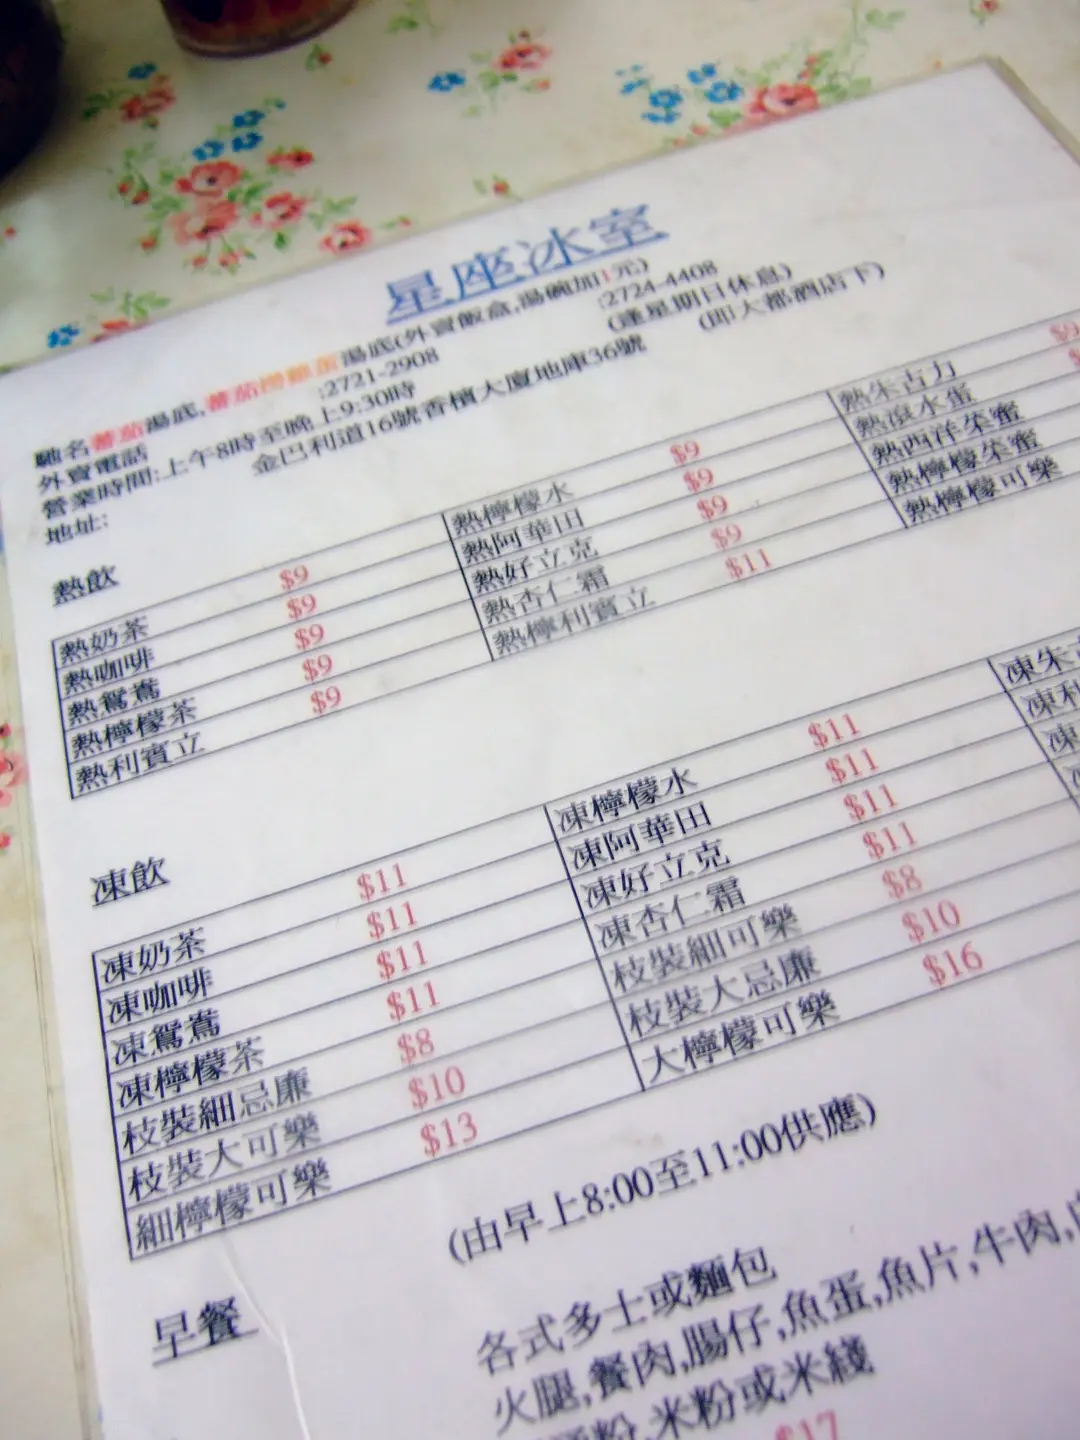 星座冰室
馳名蕃茄湯底,蕃茄撈雞蛋湯底(外賣飯盒,湯碗加1元)
外賣電話 :2721-2908 :2724-4408
營業時間:上午8時至晚上9:30時 (逢星期日休息)
地址: 金巴利道16號香檳大廈地庫36號 (即大都酒店下)
熱飲
熱奶茶 $9 熱檸檬水 $9 熱朱古力 $9
熱咖啡 $9 熱阿華田 $9 熱滾水蛋
熱鴛鴦 $9 熱好立克 $9 熱西洋菜蜜
熱檸檬茶 $9 熱杏仁霜 $9 熱檸檬菜蜜
熱利賓立 $9 熱檸利賓立 $11 熱檸檬可樂
凍飲
凍奶茶 $11 凍檸檬水 $11 凍朱
凍咖啡 $11 凍阿華田 $11 凍利
凍鴛鴦 $11 凍好立克 $11 凍
凍檸檬茶 $11 凍杏仁霜 $11
枝裝細忌廉 $8 枝裝細可樂 $8
枝裝大可樂 $10 枝裝大忌廉 $10
細檸檬可樂 $13 大檸檬可樂 $16
早餐 (由早上8:00至11:00供應)
各式多士或麵包
火腿,餐肉,腸仔,魚蛋,魚片,牛肉,
通粉,米粉或米綫
$17